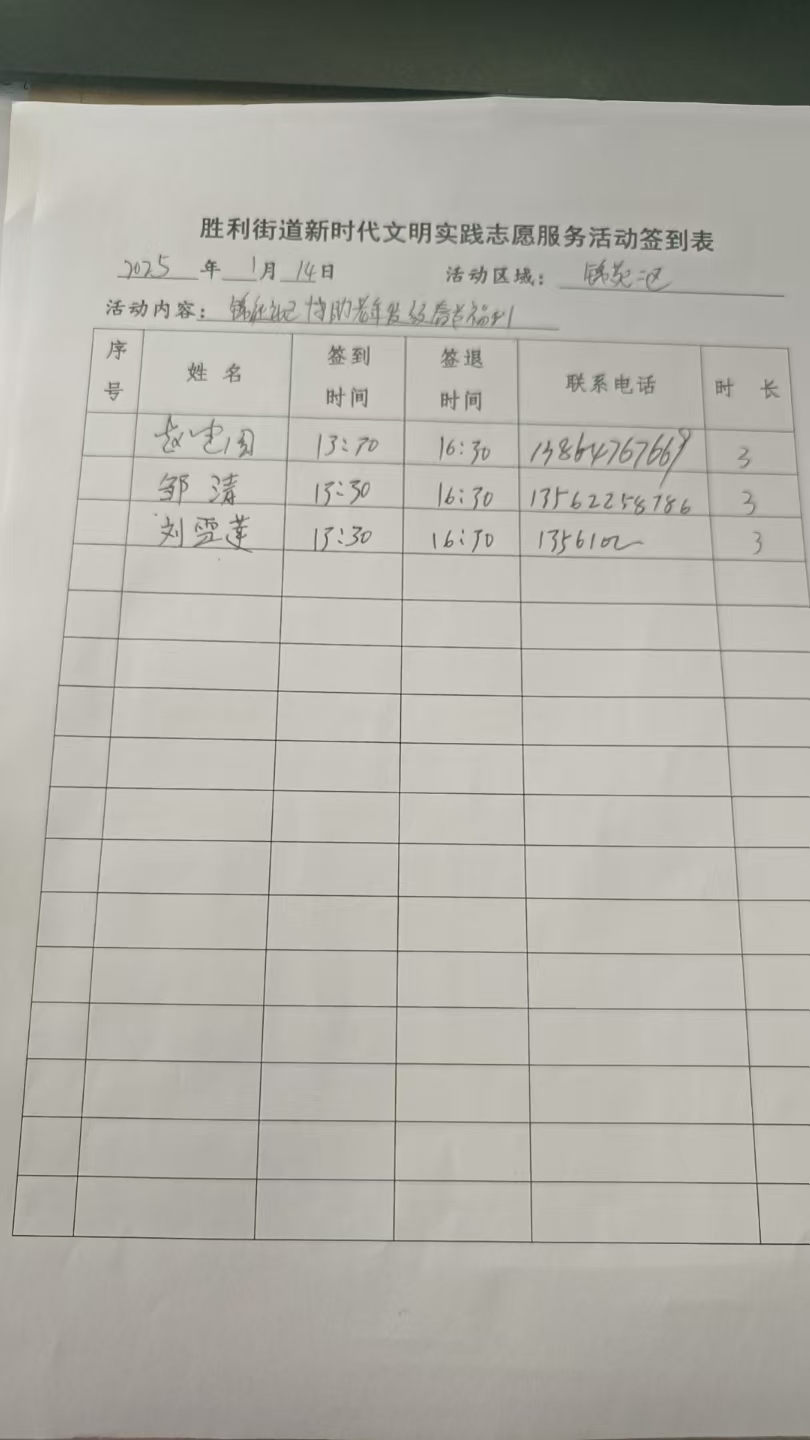 胜利街道新时代文明实践志愿服务活动签到表
2025 年 1月 14日 活动区域:
活动内容: 协助老年发放春节福利
序号 姓名 签到时间 签退时间 联系电话 时长
13:30 16:30 13864767669 3
邹清 13:30 16:30 13562258786 3
刘雪莲 13:30 16:30 3